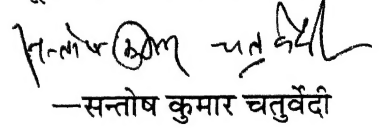 सन्तोष कुमार चतुर्वेदी
—सन्तोष कुमार चतुर्वेदी